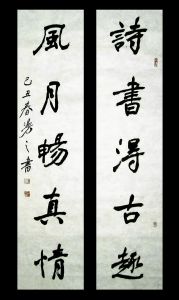 詩書得古趣
風月暢真情
己丑春湧之書